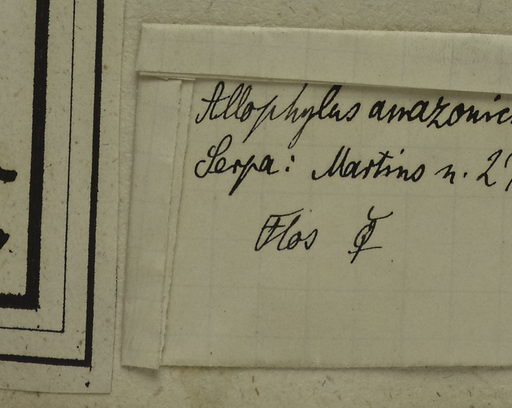 Allophylus amazonic
Serpa: Martins n. 2
Flos ☿